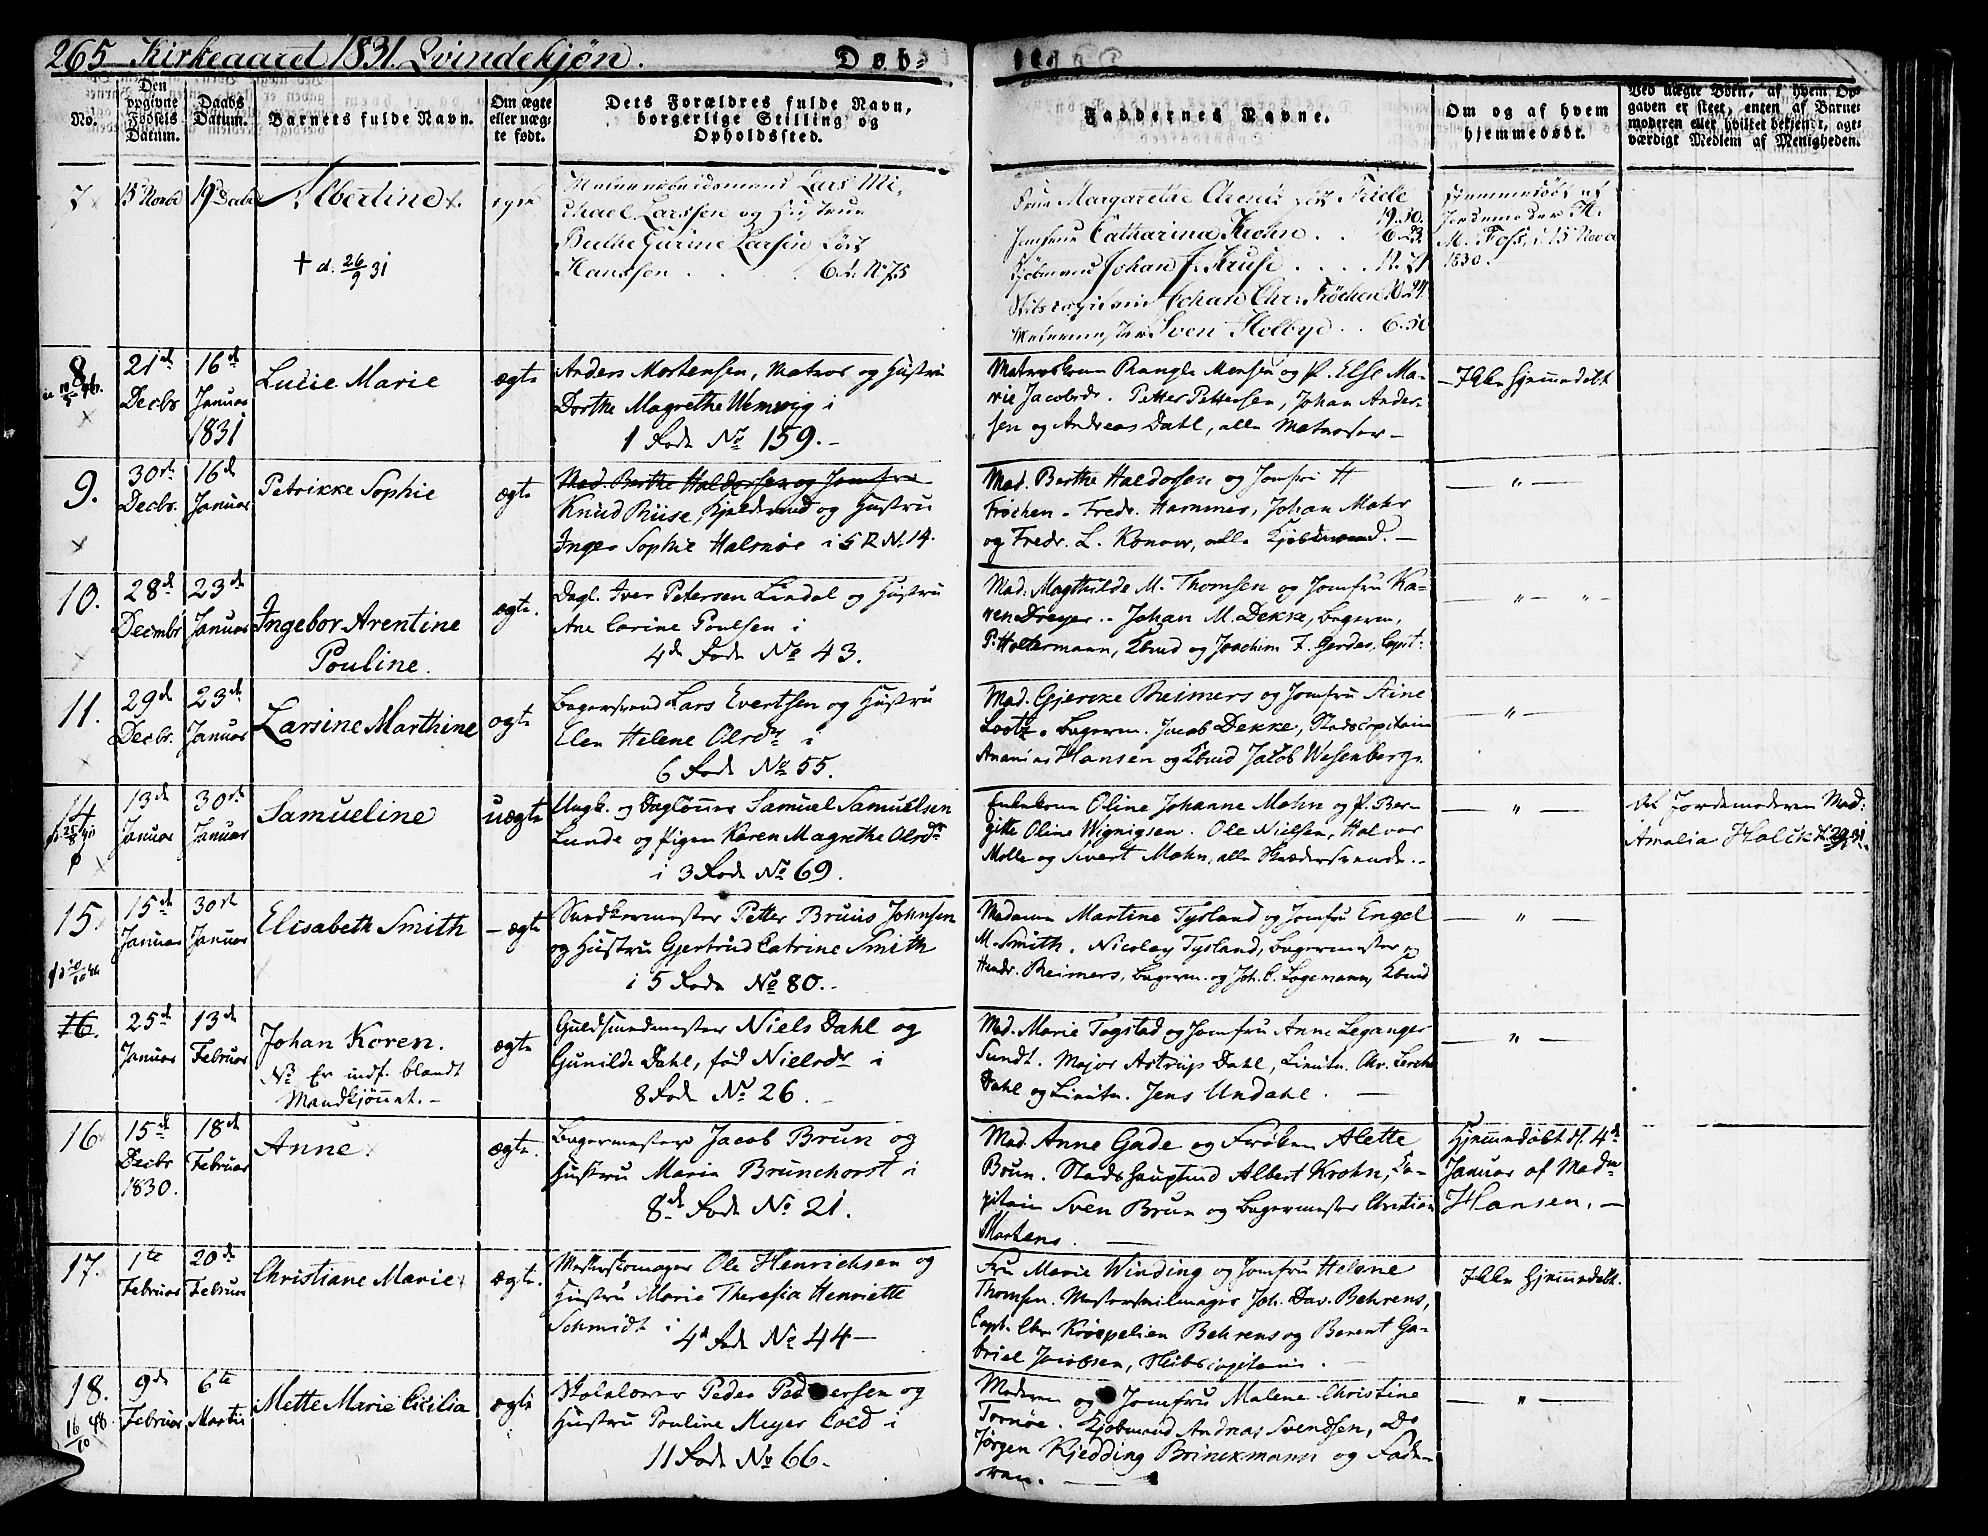 265 Kirkeaaret 1831. Qvindekjøn.
Døb-
No.
Den
opgivne
Fødsels
Datum.
Daabs
Datum.
Barnets fulde Navn.
Om ægte
eller uæg-
te født.
Dets Forældres fulde Navn,
borgerlige Stilling og
Opholdssted.
Faddernes Navne.
Om og af hvem
hjemmedøbt.
Ved uægte Børn, af hvem Op-
gaven er skeet, enten af Barne-
moderen eller hvilket bekjendt, agt-
værdigt Medlem af Menigheden.
7
15 Novbr
19 Decbr
Albertine
† d. 26/9 31
ægte
Lars Mi-
chael Larssen og Hustrue
Berthe Gurine Larsen født
Hanssen . . . 6 d. No 75
Frue Margarethe født Friele
19.30.
Jomfrue Catharina Krohn . . 6.
Kjøbmand Johan J. Kruse . . . . 11. 21
Johan Chr: Fröchen 10.24
Sven Helbye . . 6.50
Hjemmedøbt af
Jordemoder M.
M. Foss, d. 15 Novbr
1830.
8
21de
Decbr
16de
Januar
1831
Lucie Marie
ægte
Anders Mortensen, Matros og Hustru
Dorthe Magrethe Wernvig i
1 Rode No 159.-
Matroskone Rangle Monsen og P. Else Ma-
rie Jacobsdr. Petter Pettersen, Johan Ander-
sen og Andreas Dahl, alle Matroser -
- Ikke hjemmedøbt
9.
30te
Decbr.
16de
Januar
Petrikke Sophie
ægte
Mad. Berthe Haldorsen og Jomfru
Knud Riise, Kjøbmand og Hustru
Inger Sophie Halsnöe i 5 R N. 14.
Mad. Berthe Haldorsen og Jomfru H
Fröchen. Fredr. Hammer, Johan Mohr
og Fredr. L. Konow, alle Kjøbmænd. -
- " -
10.
28de
Decmbr
23de
Januar
Ingebor Arentine
Pouline.
ægte.
Dagl. Iver Petersen Lindal og Hustru
Ane Carine Poulsen i
4de Rode No 43.
Mad. Magthilde M. Thomsen og Jomfru Ka-
ren Dreyer.. Johan M. Dekke, Bagerm,
P. Holtermann, Kbmd og Joachim F. Gerdes, Capt:
- " - " -
11.
29de
Decbr.
23de
Januar
Larsine Marthine
ægte
Bagersvend Lars Evertsen og Hustru
Elen Helene Olsdr i
6 Rode No 55.
Mad. Gjercke Reimers og Jomfru Stine
Lootz. Bagerm. Jacob Dekke, Stadscapitain
Ananias Hansen og Kbmd Jacob Wesenberg.
- " -
14
13de
Januar
30te
Januar
Samueline
uægte
Ungk. og Daglønner Samuel Samuelsen
Lunde og Pigen Karen Magrethe Olsdr
i 3 Rode No 69.
Enkekone Oline Johanne Mohn og P. Ber-
gitte Oline Wignigsen. Ole Nielsen, Halvor
Molle og Sivert Mohn, alle Skrædersvende.-
- " -
Af Jordemoderen Mad:
Amalia Holck
15.
15de
Januar
30te
Januar
Elisabeth Smith
- ægte
Petter Bruus Johnsen
og Hustru Gjertrud Catrine Smith
i 5 Rode No 80.-
Madame Martine Tysland og Jomfru Engel
M. Smith. Nicolay Tysland, Bagermester og
Hendr. Reimers, Bagerm. og Joh. C. Lagemann, Kbmd
- " -
16.
25de
Januar
13de
Februar
Johan Koren.
NB Er indf. blandt
Mandkjønnet. -
ægte
Guldsmedmester Niels Dahl og
Gunilde Dahl, fød Nielsdr i
8 Rode No 26 .
Mad. Marie Togstad og Jomfru Anne Leganger
Sundt. Major Astrup Dahl, Lieutn. Chr. Lerche
Dahl og Lieutn. Jens Undahl. -
- " -
16
15de
Decbr
1830.
18de
Februar
Anne
ægte.
Bagermester Jacob Brun og
Hustru Maria Brunchorst i
8de Rode No 21.
Mad. Anne Gade og Frøken Alette
Brun. Stadshauptmd Albert Krohn, Ca-
pitain Sven Brun og Bagermester Christian
Martens. -
Hjemmedøbt d. 4de
Januar af Madme
Hansen. -
17.
1te
Februar
20de
Februar
Christiane Marie
ægte.
Mesterskomager Ole Henrichsen og
Hustru Marie Theresia Henriette
Schmidt i 4d Rode No 44 -
Fru Marie Winding og Jomfru Helene
Thomsen. Mesterseilmager Joh. Dav. Behrens,
Capt. Chr Kröepelien Behrens og Berent Ga-
briel Jacobsen, Skibscapitain. -
Ikke hjemmedøbt.
18.
16/10 48.
9de
Februar
6te
Martii
Mette Marie Cicilia
ægte
Skolelærer Peder Pedersen og
Hustru Pouline Meyer Coed i
11 Rode No 66.
Moderen og Jomfru Malene Christine
Tornöe. Kjøbmand Andreas Svendsen, Do
Jørgen Kjedding Brinckmann og Fade-
ren. -
- " -